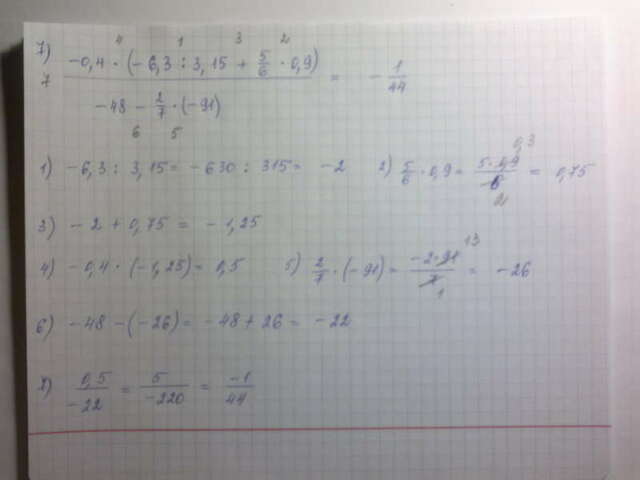 4 1 3 2
7) -0,4 · (-6,3 : 3,15 + 5/6 · 0,9)
7 = - 1/44
-48 - 2/7 · (-91)
6 5
1) -6,3 : 3,15 = -630 : 315 = -2 2) 5/6 · 0,9 = 5 · 0,9/6 = 0,75
0,3
2
3) -2 + 0,75 = -1,25
4) -0,4 · (-1,25) = 0,5 5) 2/7 · (-91) = -2 · 91/7 = -26
13
1
6) -48 - (-26) = -48 + 26 = -22
7) 0,5/-22 = 5/-220 = -1/44